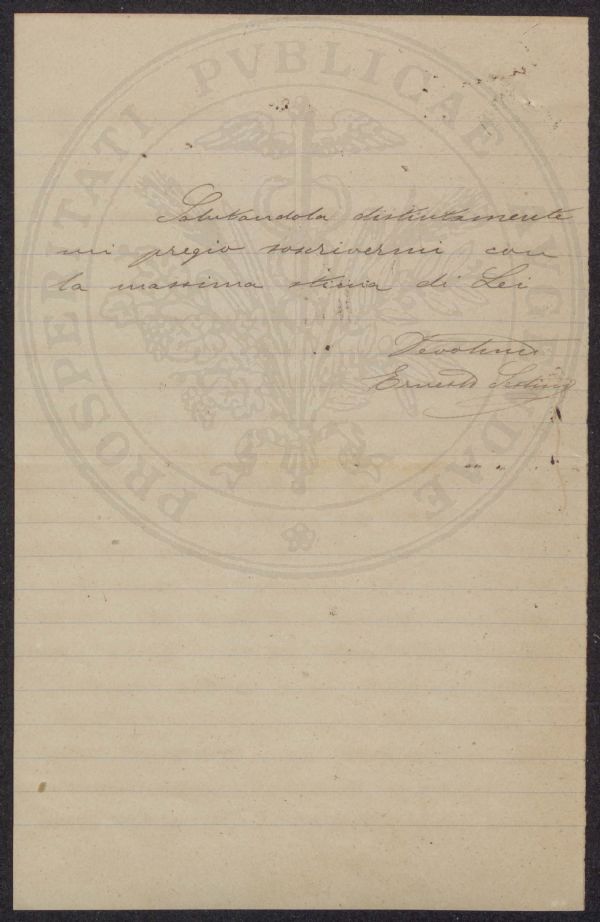 PROSPERITATI PVBLICAE AVGENDAE
Salutandola distintamente
mi pregio soscrivermi con
la massima stima di Lei
Devotino
Ernesto